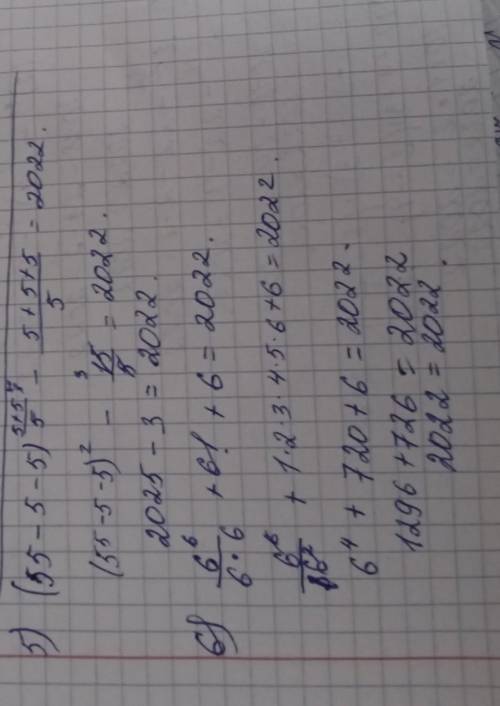 5) (55 - 5 - 5)^(5+5)/5 - (5+5+5)/5 = 2022.
(55 - 5 - 5)² - 15/5 = 2022.
2025 - 3 = 2022.
6) 6⁶/(6·6) + 6! + 6 = 2022.
6⁶/6² + 1·2·3·4·5·6 + 6 = 2022.
6⁴ + 720 + 6 = 2022.
1296 + 726 = 2022
2022 = 2022.